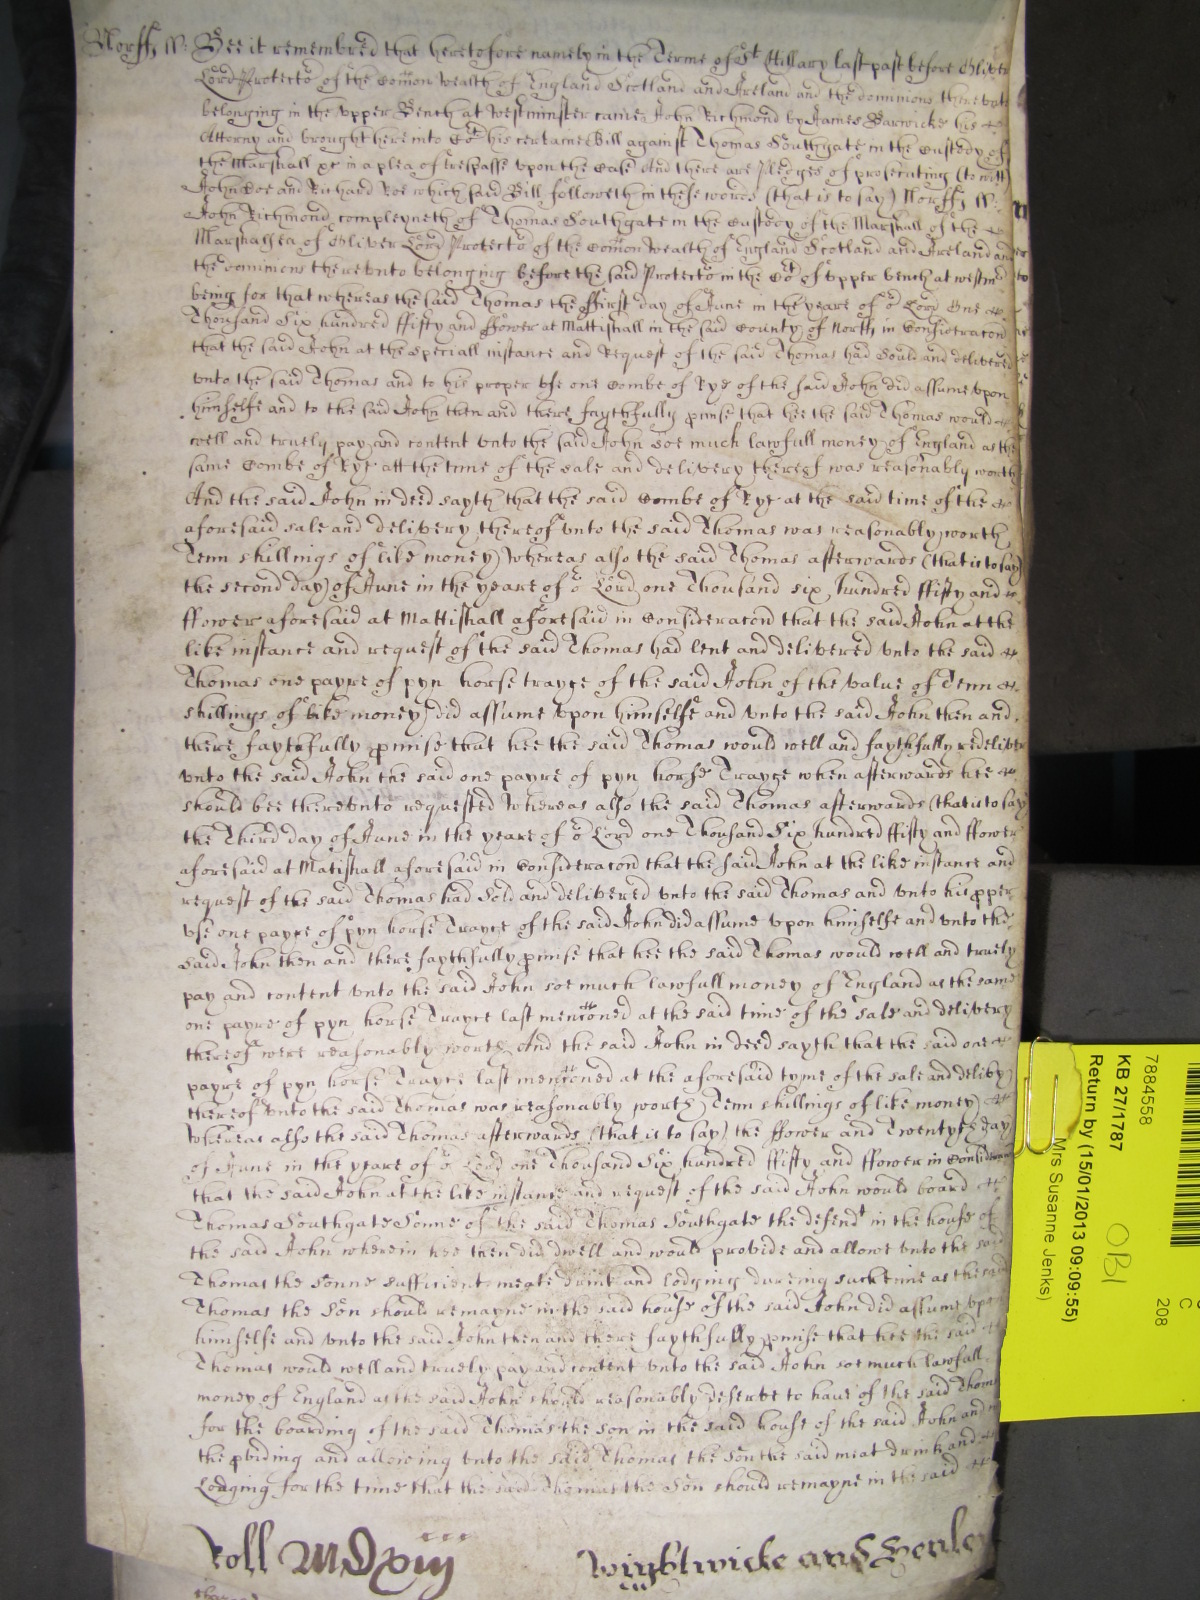 Norff ss: Bee it remembred that heretofore namely in the Terme of St Hillary last past before Oliver
Lord Protector of the Comon wealth of England Scotland and Ireland and the dominions therevnto
belonging in the vpper Bench at Westminster came John Richmond by James Barwicke his
Attorny and brought here into Cot his certaine Bill against Thomas Southgate in the Custody of
the Marshall &c in a plea of trespasse vpon the Case And there are Pledges of prosecuting (to witt)
John Doe and Richard Roe which said Bill followeth in these words (that is to say) Norff ss:
John Richmond compleyneth of Thomas Southgate in the Custody of the Marshall of the
Marshalsea of Oliver Lord Protector of the Comon wealth of England Scotland and Ireland and
the dominions therevnto belonging before the said Protector in the Cot of vpper bench at westmr
being for that whereas the said Thomas the ffirst day of June in the yeare of or Lord One
Thousand Six hundred ffifty and ffower at Mattishall in the said County of Norff in Consideracon
that the said John at the speciall instance and Request of the said Thomas had Sould and delivered
vnto the said Thomas and to his proper vse one Combe of Rye of the said John did assume vpon
himselfe and to the said John then and there faythfully pmise that hee the said Thomas would
well and truely pay and content vnto the said John soe much lawfull money of England as the
same Combe of Rye att the time of the sale and delivery thereof was reasonably worth
And the said John in deed sayth that the said Combe of Rye at the said time of the
aforesaid sale and delivery thereof vnto the said Thomas was reasonably worth
Tenn shillings of like money Whereas also the said Thomas afterwards (that is to say)
the second day of June in the yeare of or Lord one Thousand six hundred ffifty and
ffower aforesaid at Mattishall aforesaid in Consideracon that the said John at the
like instance and request of the said Thomas had lent and delivered vnto the said
Thomas one payre of pyn horse trayce of the said John of the value of Tenn
shillings of like money did assume vpon himselfe and vnto the said John then and
there faythfully pmise that hee the said Thomas would well and faythfully redeliver
vnto the said John the said one payre of pyn horse Trayce when afterwards hee
should bee therevnto requested Whereas also the said Thomas afterwards (that is to say)
the Third day of June in the yeare of or Lord one Thousand Six hundred ffifty and ffower
aforesaid at Matishall aforesaid in Consideracon that the said John at the like instance and
request of the said Thomas had Sold and delivered vnto the said Thomas and vnto his pper
vse one payre of pyn horse Trayce of the said John did assume vpon himselfe and vnto the
said John then and there faythfully pmise that hee the said Thomas would well and truely
pay and content vnto the said John soe much lawfull money of England as the same
one payre of pyn horse Trayce last mencioned at the said time of the sale and delivery
thereof were reasonably worth And the said John in deed sayth that the said one
payre of pyn horse Trayce last mencioned at the aforesaid tyme of the sale and delivy
thereof vnto the said Thomas was reasonably worth Tenn shillings of like money
Whereas also the said Thomas afterwards (that is to say) the ffower and Twentyth day
of June in the yeare of or Lord one Thousand Six hundred ffifty and ffower in Consideracon
that the said John at the like instance and request of the said John would board
Thomas Southgate Sonne of the said Thomas Southgate the defendt in the house of
the said John wherein hee then did dwell and would provide and allowe vnto the said
Thomas the Sonne sufficient meate drink and lodging dureing such time as the said
Thomas the Son should remayne in the said house of the said John did assume vpon
himselfe and vnto the said John then and there faythfully pmise that hee the said
Thomas would well and truely pay and content vnto the said John soe much lawfull
money of England as the said John should reasonably deserve to have of the said Thomas
for the boarding of the said Thomas the son in the said house of the said John and
the pviding and allowing vnto the said Thomas the Son the said meat drink and
Lodging for the time that the said Thomas the Son should remayne in the said
Roll MDxiij
Wightwicke and Henley
7884558
KB 27/1787
Return by (15/01/2013 09:09:55)
Mrs Susanne Jenks)
OBI
C
208